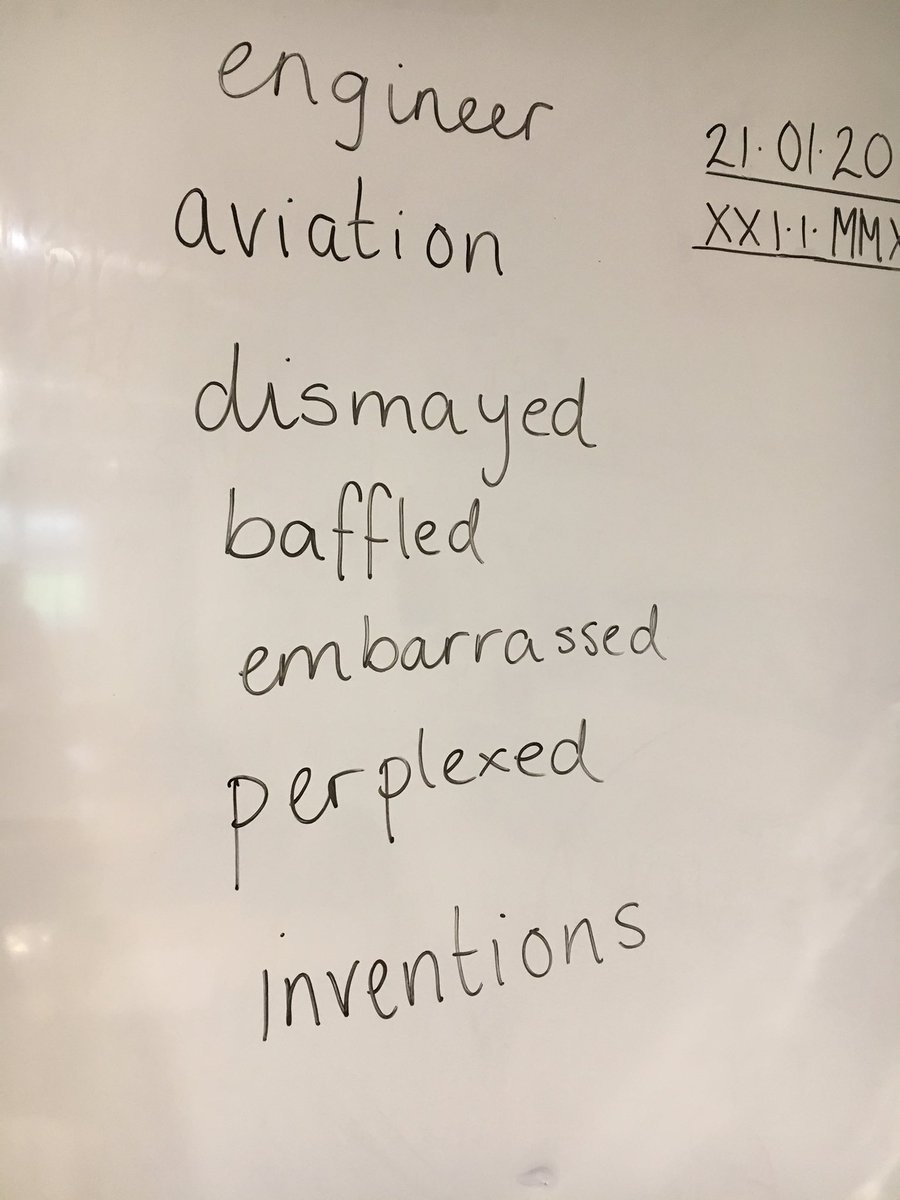 engineer
aviation
21.01.20
XXI.I.MMX
dismayed
baffled
embarrassed
perplexed
inventions